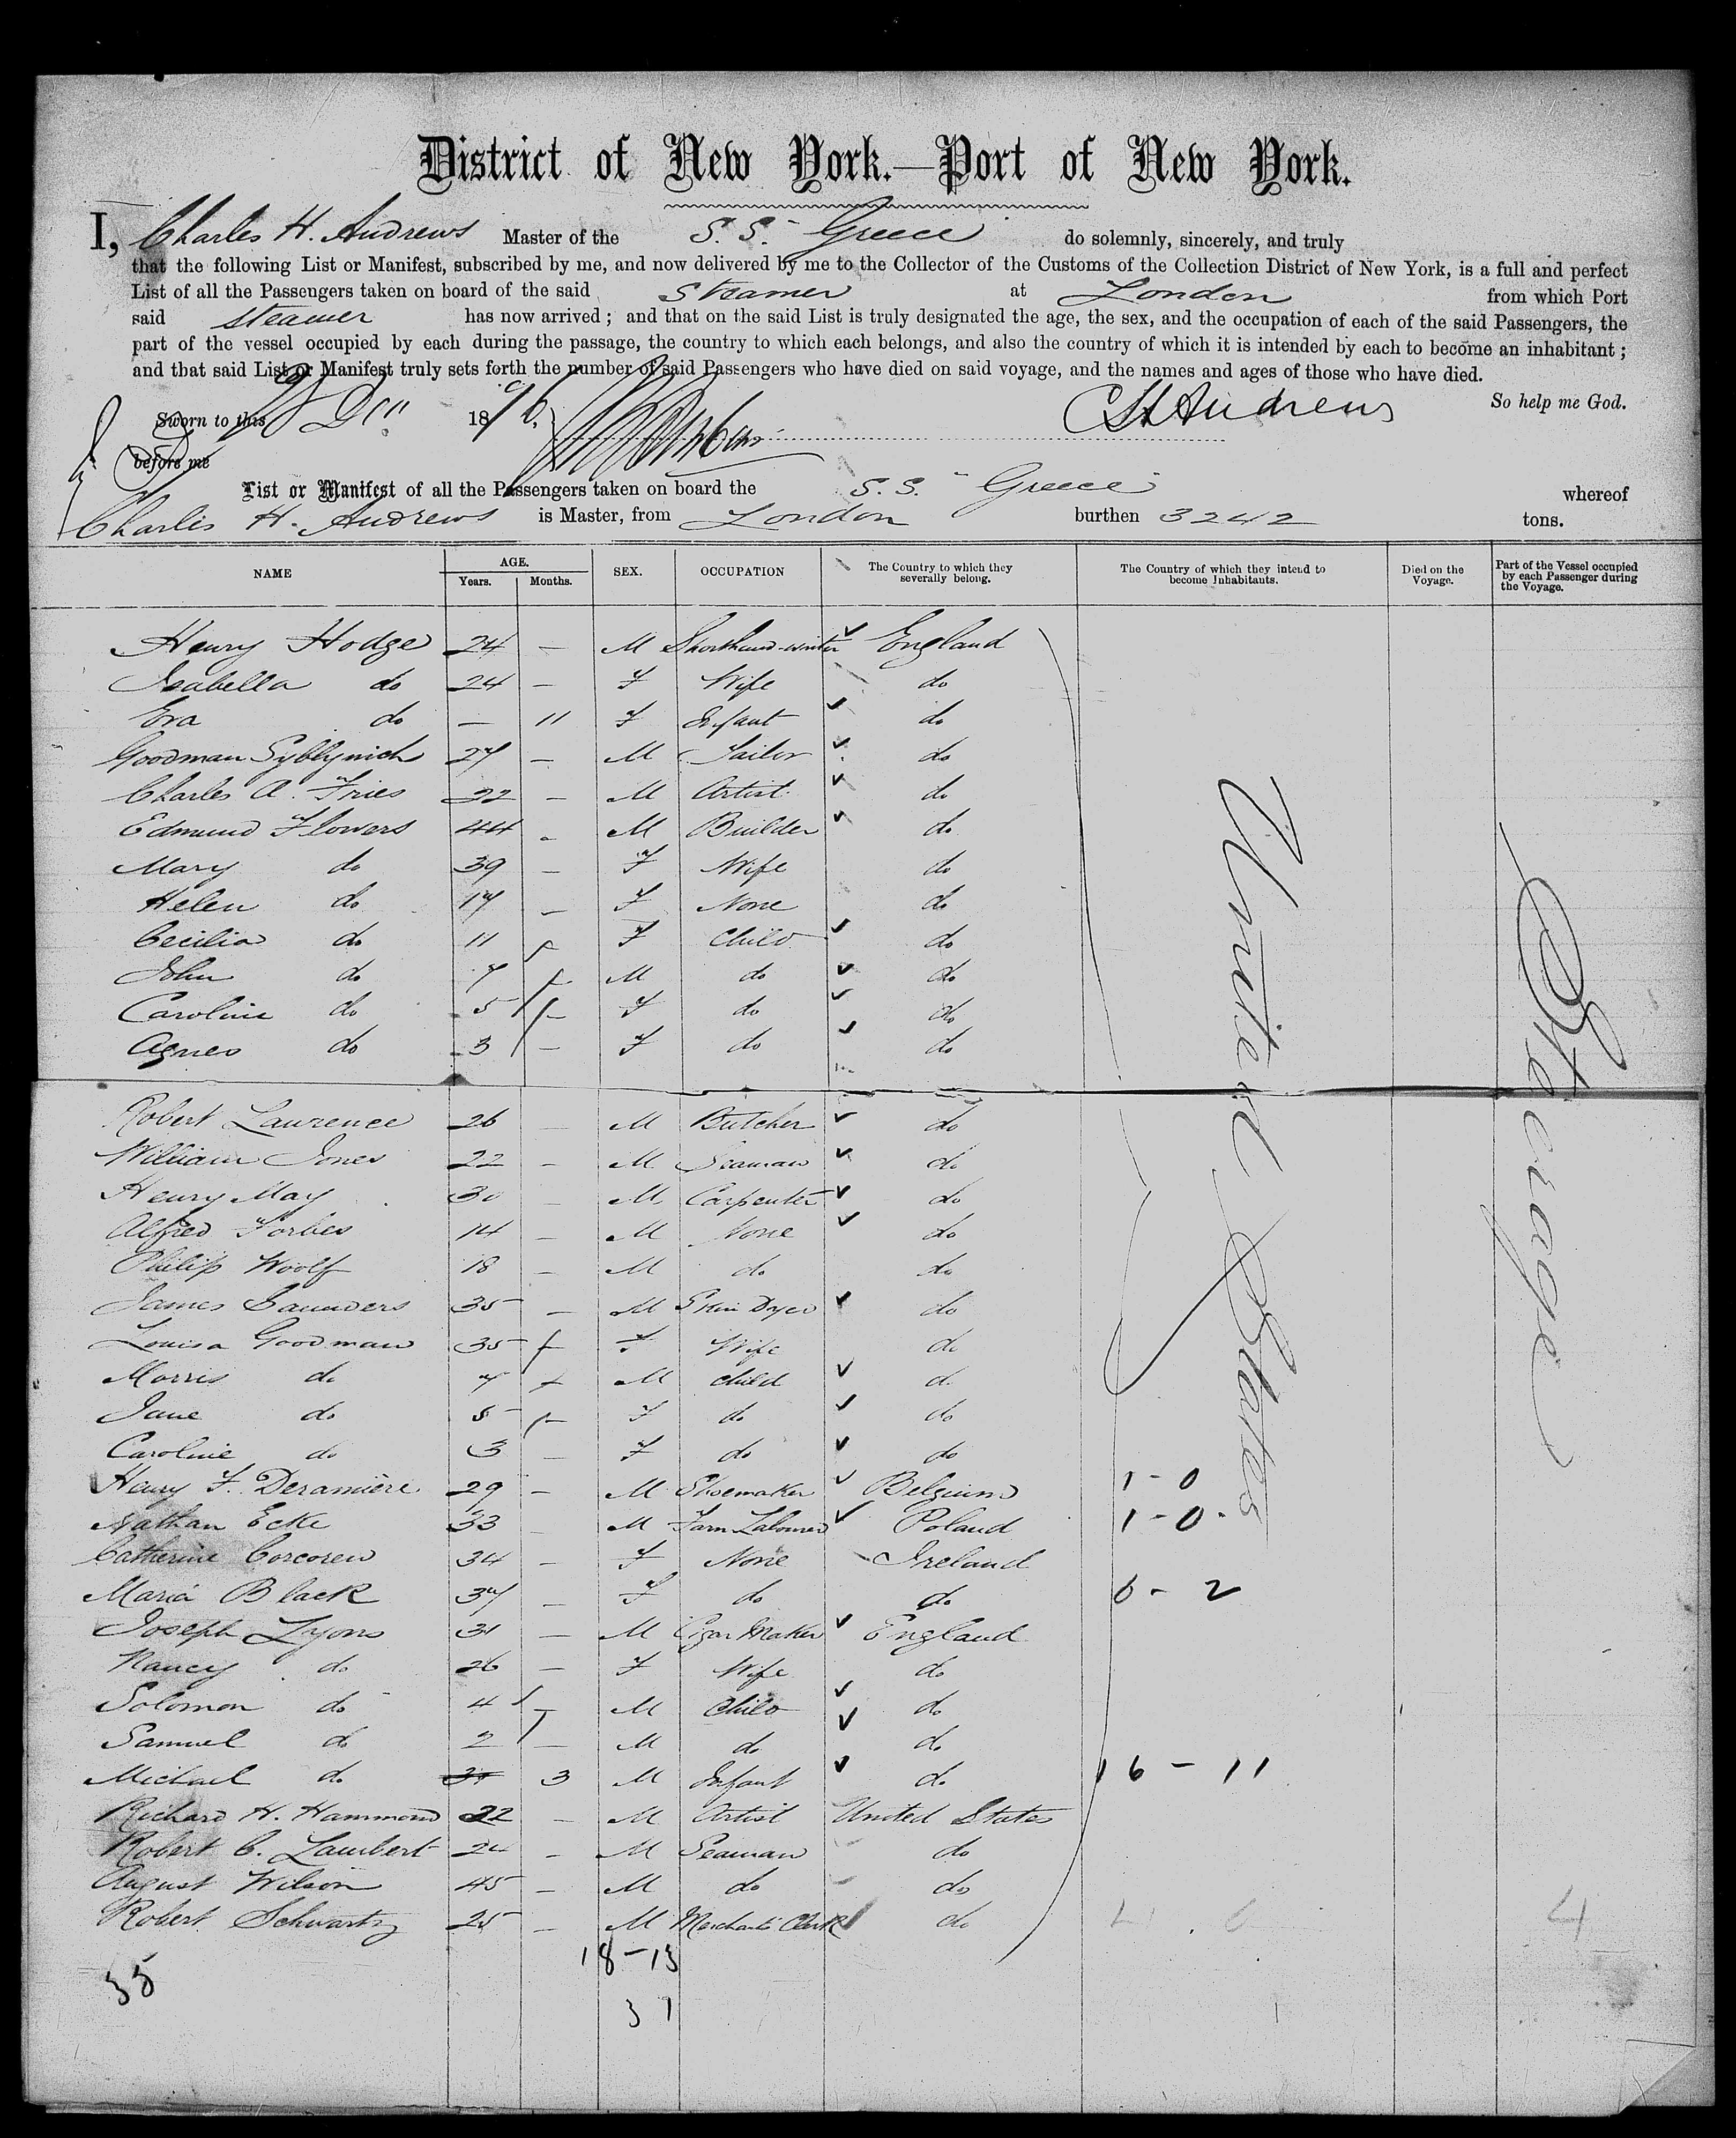 District of New York.—Port of New York.
I, Charles H. Andrews Master of the S. S. Greece do solemnly, sincerely, and truly
that the following List or Manifest, subscribed by me, and now delivered by me to the Collector of the Customs of the Collection District of New York, is a full and perfect
List of all the Passengers taken on board of the said Steamer at London from which Port
said Steamer has now arrived; and that on the said List is truly designated the age, the sex, and the occupation of each of the said Passengers, the
part of the vessel occupied by each during the passage, the country to which each belongs, and also the country of which it is intended by each to become an inhabitant;
and that said List or Manifest truly sets forth the number of said Passengers who have died on said voyage, and the names and ages of those who have died.
So help me God.
Sworn to this Dec 1876 CH Andrews
before me
List or Manifest of all the Passengers taken on board the S. S. Greece whereof
Charles H. Andrews is Master, from London burthen 3242 tons.
NAME AGE. Years. Months. SEX. OCCUPATION The Country to which they severally belong. The Country of which they intend to become Inhabitants. Died on the Voyage. Part of the Vessel occupied by each Passenger during the Voyage.
Henry Hodge 24 — M Shorthand-writer England
Isabella do 24 — F Wife do
Eva do — 11 F Infant do
Goodman 27 — M Tailor do
Charles A. Fries 22 — M Artist do
Edmund Flowers 44 — M Builder do
Mary do 39 — F Wife do
Helen do 17 — F None do
Cecilia do 11 — F Child do
John do 7 — M do do
Caroline do 5 — F do do
Agnes do 3 — F do do
United States
Steerage
Robert Laurence 26 — M Butcher do
William Jones 22 — M Seaman do
Henry May 30 — M Carpenter do
Alfred Forbes 14 — M None do
Philip Woolf 18 — M do do
James Saunders 35 — M Skin Dyer do
Louisa Goodman 35 — F Wife do
Morris do 7 — M Child do
Jane do 5 — F do do
Caroline do 3 — F do do
Henry F. Deramière 29 — M Shoemaker Belgium 1-0
Nathan Ecke 33 — M Farm Labourer Poland 1-0
Catherine Corcoren 34 — F None Ireland
Maria Black 37 — F do do 0-2
Joseph Lyons 31 — M Cigar Maker England
Nancy do 26 — F Wife do
Solomon do 4 — M Child do
Samuel do 2 — M do do
Michael do 3 M Infant do 16-11
Richard H. Hammond 22 — M Artist United States
Robert C. Lambert 24 — M Seaman do
August Wilson 45 — M do do
Robert Schwartz 25 — M Merchants Clerk do 4
18-13
35
31